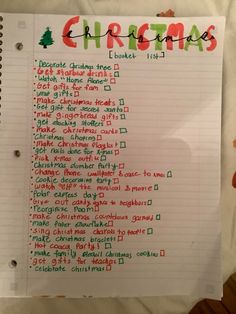 CHRISTMAS
christmas
[bucket list]
Decorate christmas tree
Get starbucks drinks
Watch "Home Alone"
Get gifts for fam
Wrap gifts
make christmas treats
Get gift for secret santa
Make gingerbread gifts
get stocking stuffers
Make christmas cards
Christmas shopping
Make christmas playlist
Get nails done for x-mas
Pick x-mas outfit
Christmas slumber Party
Change Phone wallpaper & case to xmas
Cookie decorating Party
Watch "elf" the musical & movie
Polar express day
Give out candy canes to neighbors
Reorganize room
make christmas countdown
make Paper Snowflakes
sing christmas charols to people
make christmas bracelets
Hot cocoa Party!
make family christmas cookies
get gifts for teachers
celebrate christmas